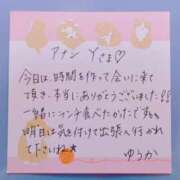 アナン Yさま♡
今日は、時間を作って会いに来て
頂き、本当にありがとうございました!!
一緒にランチ食べたかたです
明日は気を付けて出張へ行かれ
て下さいね★
ゆうか